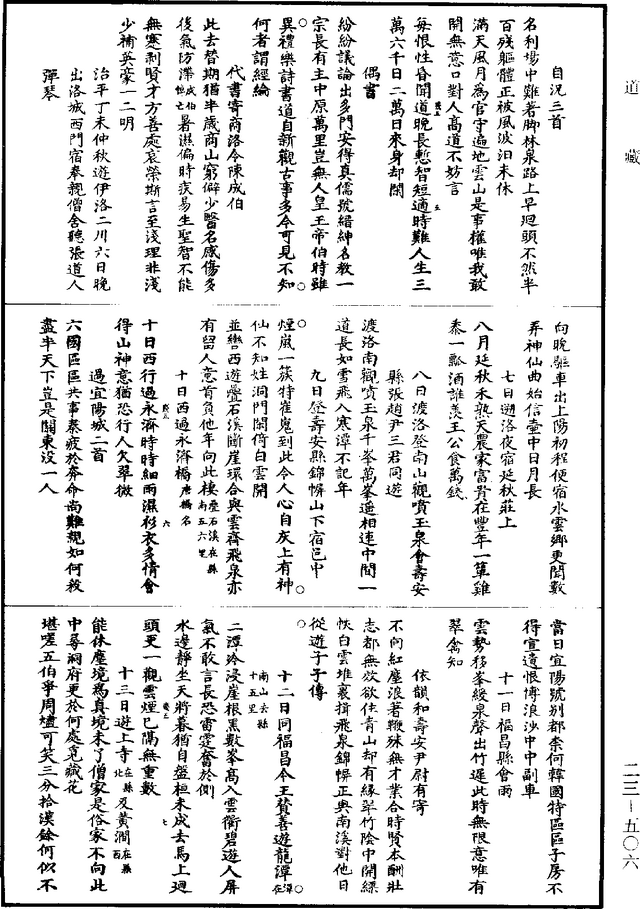 道藏
自況三首
名利場中難著脚林泉路上早迴頭不然半
百殘軀體正被風波汨未休
滿天風月爲官守遍地雲山是事權唯我敢
開無意口對人高道不妨言
每恨性昏聞道晚長慙智短適時難人生三
萬六千日二萬日來身却閑
偶書
紛紛議論出多門安得真儒號縉紳名教一
宗長有主中原萬里豈無人皇王帝伯時雖
異禮樂詩書道自新觀古事多今可見不知
何者謂經綸
代書寄商洛令陳成伯
此去替期猶半歲商山窮僻少醫名感傷多
後氣防滯成伯悼亡暑濕偏時疾易生聖智不能
無蹇剥賢才方善處哀榮斯言至淺理非淺
少補英豪一二明
治平丁未仲秋遊伊洛二川六日晚
出洛城西門宿奉親僧舍聽張道人
彈琴
向晚驅車出上陽初程便宿水雲鄉更聞數
弄神仙曲始信壺中日月長
七日遡洛夜宿延秋莊上
八月延秋禾熟天農家富貴在豐年一簞雞
黍一瓢酒誰羨王公食萬錢
八日渡洛登南山觀噴玉泉會壽安
縣張趙尹三君同遊
渡洛南觀噴玉泉千峯萬峯遥相連中間一
道長如雪飛入寒潭不記年
九日登壽安縣錦幈山下宿邑中
煙嵐一簇特崔嵬到此令人心自灰上有神
仙不知姓洞門閑倚白雲開
並轡西遊疊石溪斷崖環合與雲齊飛泉亦
有留人意肯負他年向此棲疊石溪在縣南五六里
十日西過永濟橋唐橋名
十日西行過永濟時時細雨濕衫衣多情會
得山神意猶恐行人欠翠微
過宜陽城二首
六國區區共事秦疲於奔命尚難親如何殺
盡半天下豈是關東没一人
當日宜陽號别都奈何韓國特區區子房不
得宣遺恨博浪沙中中副車
十一日福昌縣會雨
雲勢移峯緩泉聲出竹遲此時無限意唯有
翠禽知
依韻和壽安尹尉有寄
不向紅塵浪著鞭殊無才業合時賢本酬壯
志都無欲欲住青山却有緣翠竹陰中開縹
帙白雲堆裏揖飛泉錦幈正與南溪對他日
從遊子子傳
十二日同福昌令王贊善遊龍潭潭在南山去縣十五里
二潭冷浸崖根黑數峯高入雲衢碧遊人屏
氣不敢言長恐雷霆奮於側
水邊靜坐天將暮猶自盤桓未成去馬上迴
頭更一觀雲煙已隔無重數
十三日遊上寺在縣北及黄澗在縣西
能休塵境爲真境未了僧家是俗家不向此
中尋洞府更於何處覓藏花
堪嗟五伯爭周燼可笑三分拾漢餘何似不
二三－五〇六